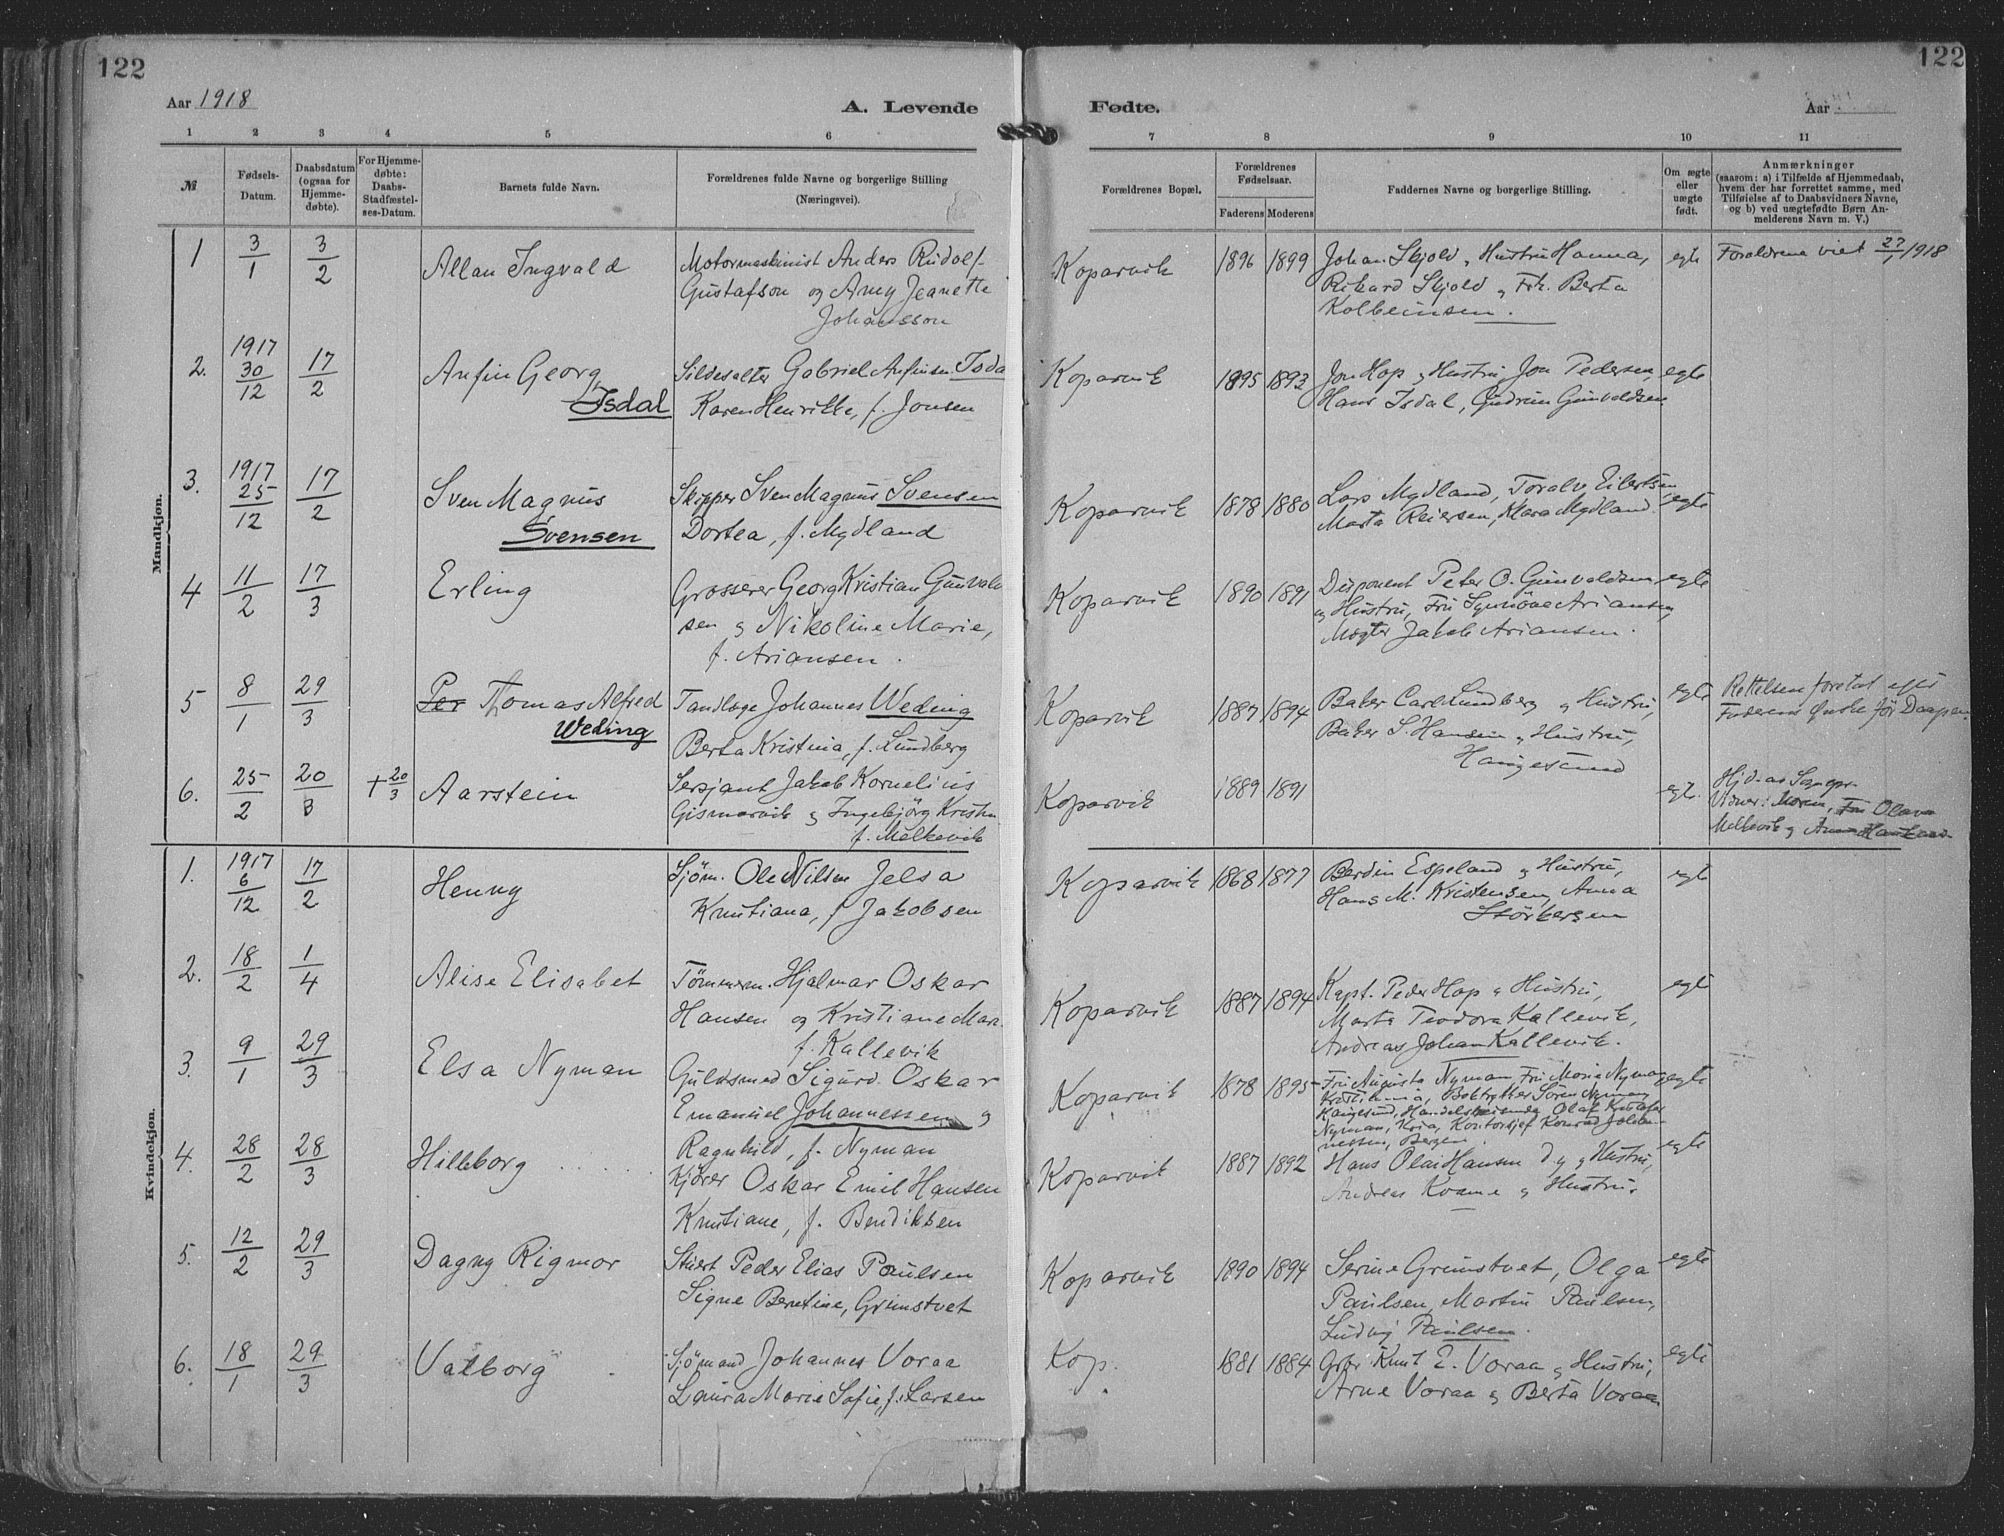 122
122
Aar 1918
A. Levende
Fødte.
Aar
1 2 3 4 5 6 7 8 9 10 11
№
Fødsels-
Datum.
Daabsdatum
(ogsaa for
Hjemme-
døbte).
For Hjemme-
døbte:
Daabs-
Stadfæstel-
ses-Datum.
Barnets fulde Navn.
Forældrenes fulde Navne og borgerlige Stilling
(Næringsvei).
Forældrenes Bopæl.
Forældrenes
Fødselsaar.
Faderens Moderens
Faddernes Navne og borgerlige Stilling.
Om ægte
eller
uægte
født.
Anmærkninger
(saasom: a) i Tilfælde af Hjemmedaab,
hvem der har forrettet samme, med
Tilføielse af to Daabsvidners Navne,
og b) ved uægtefødte Børn An-
melderens Navn m. V.)
Mandkjøn.
1 3/1 3/2 Allan Ingvald
Motormaskinist Anders Rudolf
Gustafson og Amy Jeanette
Johansson
Koparvik 1896 1899
Johan Skjold, Hustru Hanna,
Rikard Skjold, Frk. Berta
Kolbeinsen.
egte
Forældrene viet 27/1 1918
2. 1917 30/12 17/2 Anfin Georg
Isdal
Sildesalter Gabriel Anfinsen Isda
Karen Henrikke, f. Jonsen
Koparvik 1895 1893
Jon Hop og Hustru, Jon Pedersen,
Hans Isdal, Gudrun Gunvaldsen
egte
3. 1917 25/12 17/2 Sven Magnus
Svensen
Skipper Sven Magnus Svensen
Dortea, f. Mydland
Koparvik 1878 1880
Lars Mydland, Toralv Eilertsen
Marta Reiersen, Klara Mydland
egte
4 11/2 17/3 Erling
Grosserer Georg Kristian Gunvald
sen og Nikoline Marie,
f. Ariansen.
Koparvik 1890 1891
Disponent Peter O. Gunvaldsen
og Hustru, Fru Synnöve Ariansen,
Mægler Jakob Ariansen.
egte
5 8/1 29/3 Per Thomas Alfred
Weding
Tandlæge Johannes Weding
Berta Kristina, f. Lundberg
Koparvik 1887 1894
Baker Carl Lundberg og Hustru,
Baker S. Hansen og Hustru,
Haugesund
egte
Rettelsen foretat efter
Faderens Ønske før Daapen.
6. 25/2 20/3 + 20/3 Aarstein
Sersjant Jakob Kornelius
Gismarvik og Ingebjörg Kristin
f. Melkevik
Koparvik 1889 1891
egt.
Hjd. av Sognepr.
Vidner: Moren, Fru Olava
Melkevik og
Kvindekjøn.
1. 1917 6/12 17/2 Henny
Sjöm. Ole Nilsen Jelsa
Knutiana, f Jakobsen
Koparvik 1868 1877
Berdin Espeland og Hustru,
Hans M. Kristensen, Anna
Störkersen
egte
2. 18/2 1/4 Alise Elisabet
Tömmerm. Hjalmar Oskar
Hansen og Kristiane Mar.
f. Kallevik
Koparvik 1887 1894
Kapt. Peder Hop og Hustru,
Marta Teodora Kallevik,
Andreas Johan Kallevik.
egte
3. 9/1 29/3 Elsa Nyman
Guldsmed Sigurd Oskar
Emanuel Johannessen og
Ragnhild, f. Nyman
Koparvik 1878 1895
Fru Augusta Nyman, Fru Maria Nyman
Kristiania, Boktrykker Sören Nyman
Haugesund, Handelsreisende Olaf Kristofer
Nyman, Kria, Kontorsjef Konrad Johan-
nessen, Bergen.
egte
4. 28/2 28/3 Hilleborg
Kjörer Oskar Emil Hansen
Knutiane, f. Bendiksen
Koparvik 1887 1892
Hans Olai Hansen d.y. og Hustru,
Andreas Kvame og Hustru.
egte
5. 12/2 29/3 Dagny Rigmor
Stuert Peder Elias Paulsen
Signe Berntine, Grimstvet
Koparvik 1890 1894
Serine Grimstvet, Olga
Paulsen, Martin Paulsen,
Ludvig Paulsen.
egte
6. 18/1 29/3 Valborg
Sjömand Johannes Voraa
Laura Marie Sofie, f. Larsen
Kop. 1881 1884
Gbr. Knut E. Voraa og Hustru,
Arne Voraa og Berta Voraa
egte